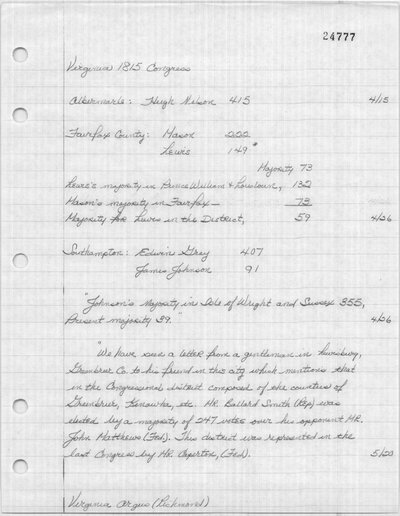 24777
Virginia 1815 Congress
Albermarle: Hugh Nelson 415 4/15
Fairfax County: Mason 222
Lewis 149
Majority 73
Lewis's majority in Prince William & Loudoun, 132
Mason's majority in Fairfax— 73
Majority for Lewis in the District, 59 4/26
Southampton: Edwin Gray 407
James Johnson 91
"Johnson's Majority in Isle of Wright and Sussex 355,
Present majority 39." 4/26
"We have seen a letter from a gentleman in Lewisburg,
Greenbrier Co. to his friend in this city which mentions that
in the Congressional district composed of the counties of
Greenbrier, Kenawha, etc. Mr. Ballard Smith (Rep) was
elected by a majority of 247 votes over his opponent Mr.
John Matthews (Fed). This district was represented in the
last Congress by Mr. Caperton, (Fed). 5/20
Virginia Argus (Richmond)